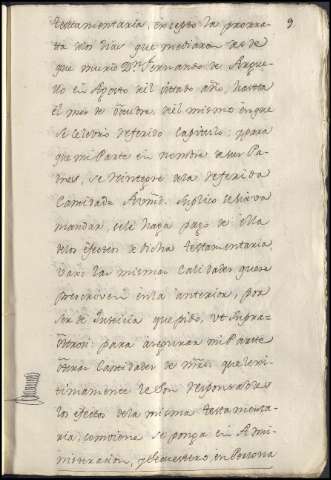 9
testamentaria, excepto la prorra-
ta delos dias que mediaron desde
que murió Dn. Fernando de Argue-
llo en Agosto del citado año, hasta
el mes de Octubre del mismo en que
se celebró el referido Capitulo; y para
que mi Parte en nombre de sus Pa-
dres, se reintegre dela referida
Cantidad: A vmd. Suplico se sirva
mandar, se le haga pago de ella
delos efectos de dicha testamentaria,
vajo las mismas Calidades que se
prescriven en la anterior, por
ser de Justicia que pido, vt supra=
Otrosi: para asegurar mi Parte
otras Cantidades de mrs. que lexi-
timamente le son responsables
los efectos dela misma testamenta-
ria; conviene se ponga en Admi-
nistracion, y secuestro en Persona